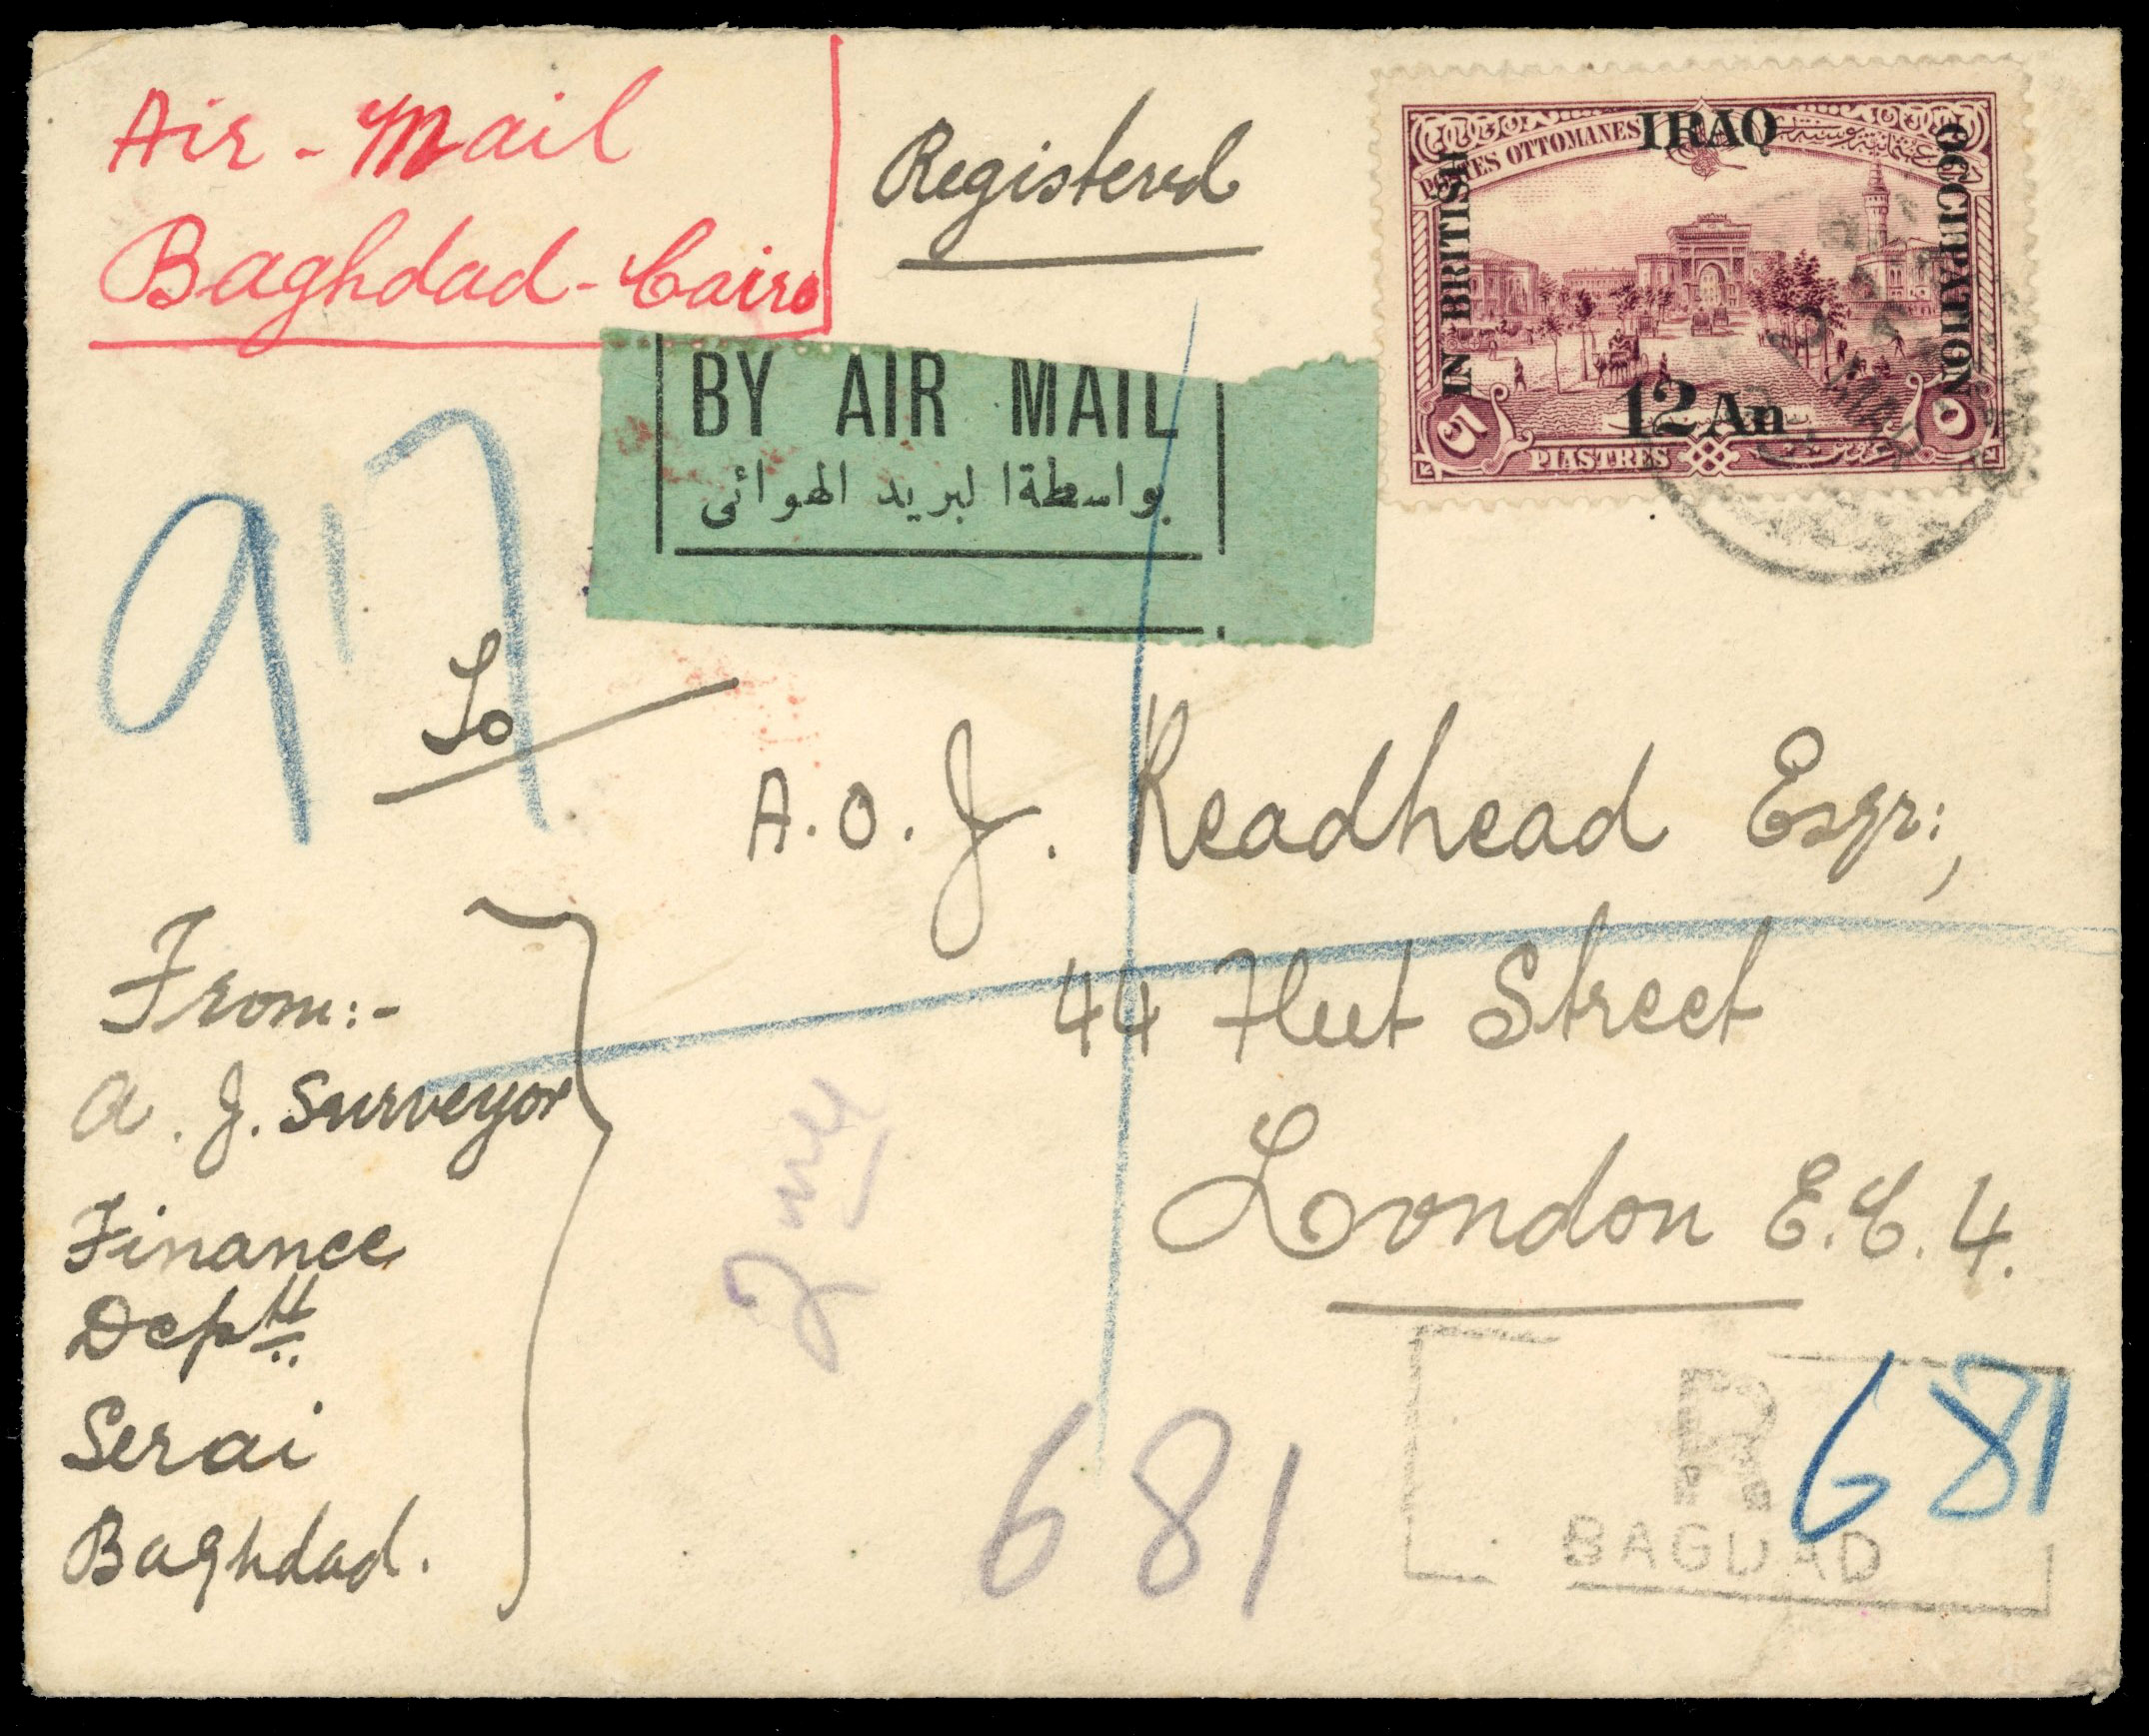 Air - Mail
Baghdad - Cairo
Registered
POSTES OTTOMANES
IRAQ
IN BRITISH
OCCUPATION
12 An
5
٥
PIASTRES
BY AIR MAIL
بواسطةا لبريد الهوائى
917
To
A. O. J. Readhead Esqr:,
44 Fleet Street
London E.C. 4.
From:-
A. J. Surveyor
Finance
Deptt
Serai
Baghdad.
681
R
681
BAGDAD